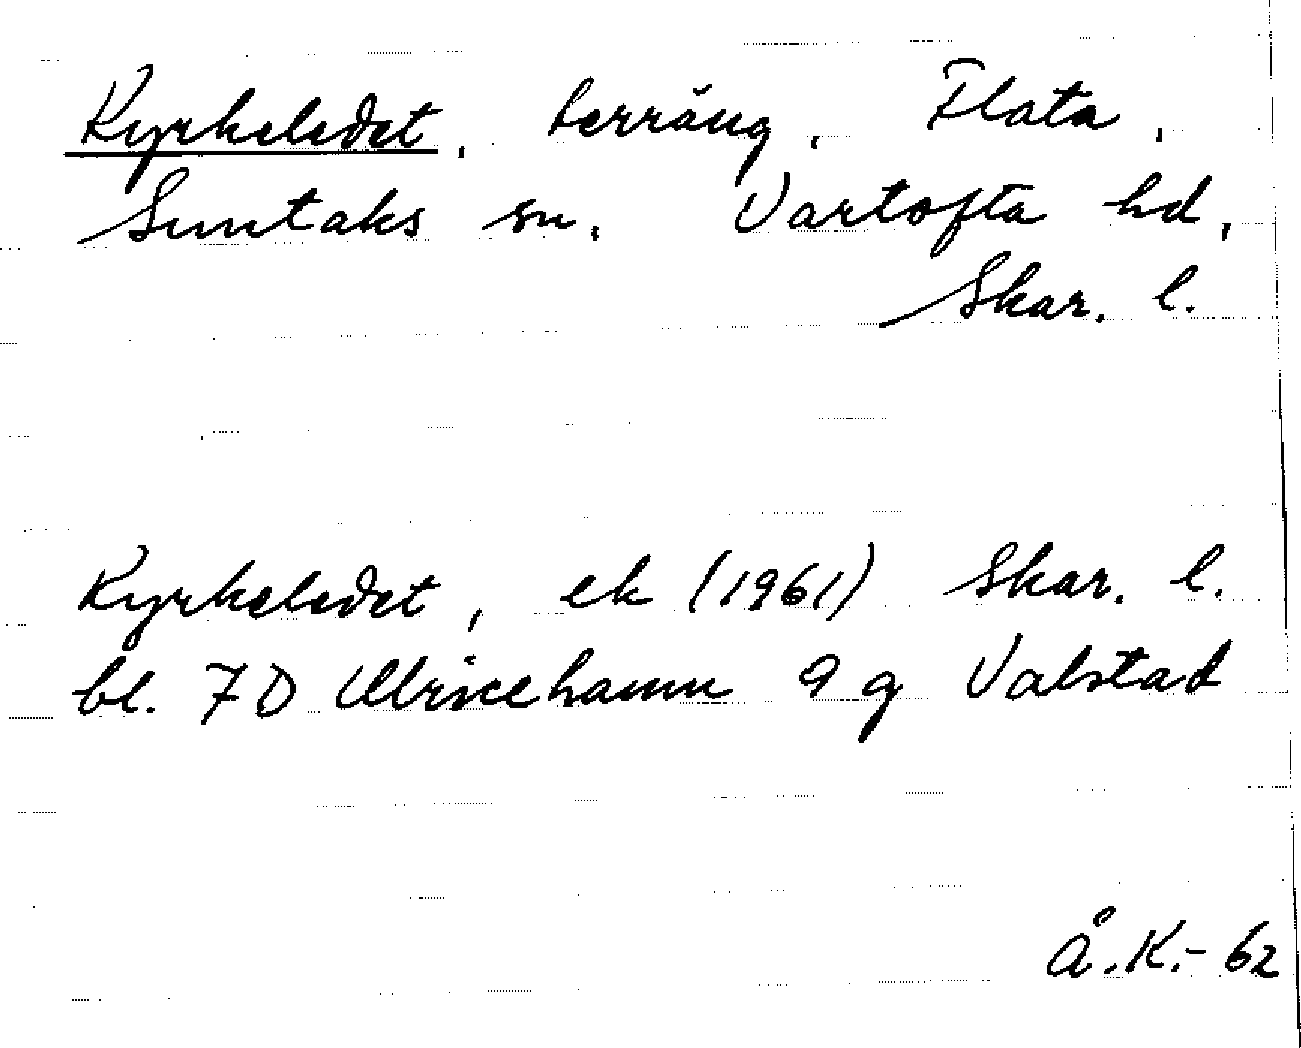 Kyrkeledet, terräng, Flata,
Suntaks sn, Vartofta hd,
Skar. l.
Kyrkeledet, ek (1961) Skar. l.
bl. 7 D Ulricehamn 9 g Valstad
Å.K.-62